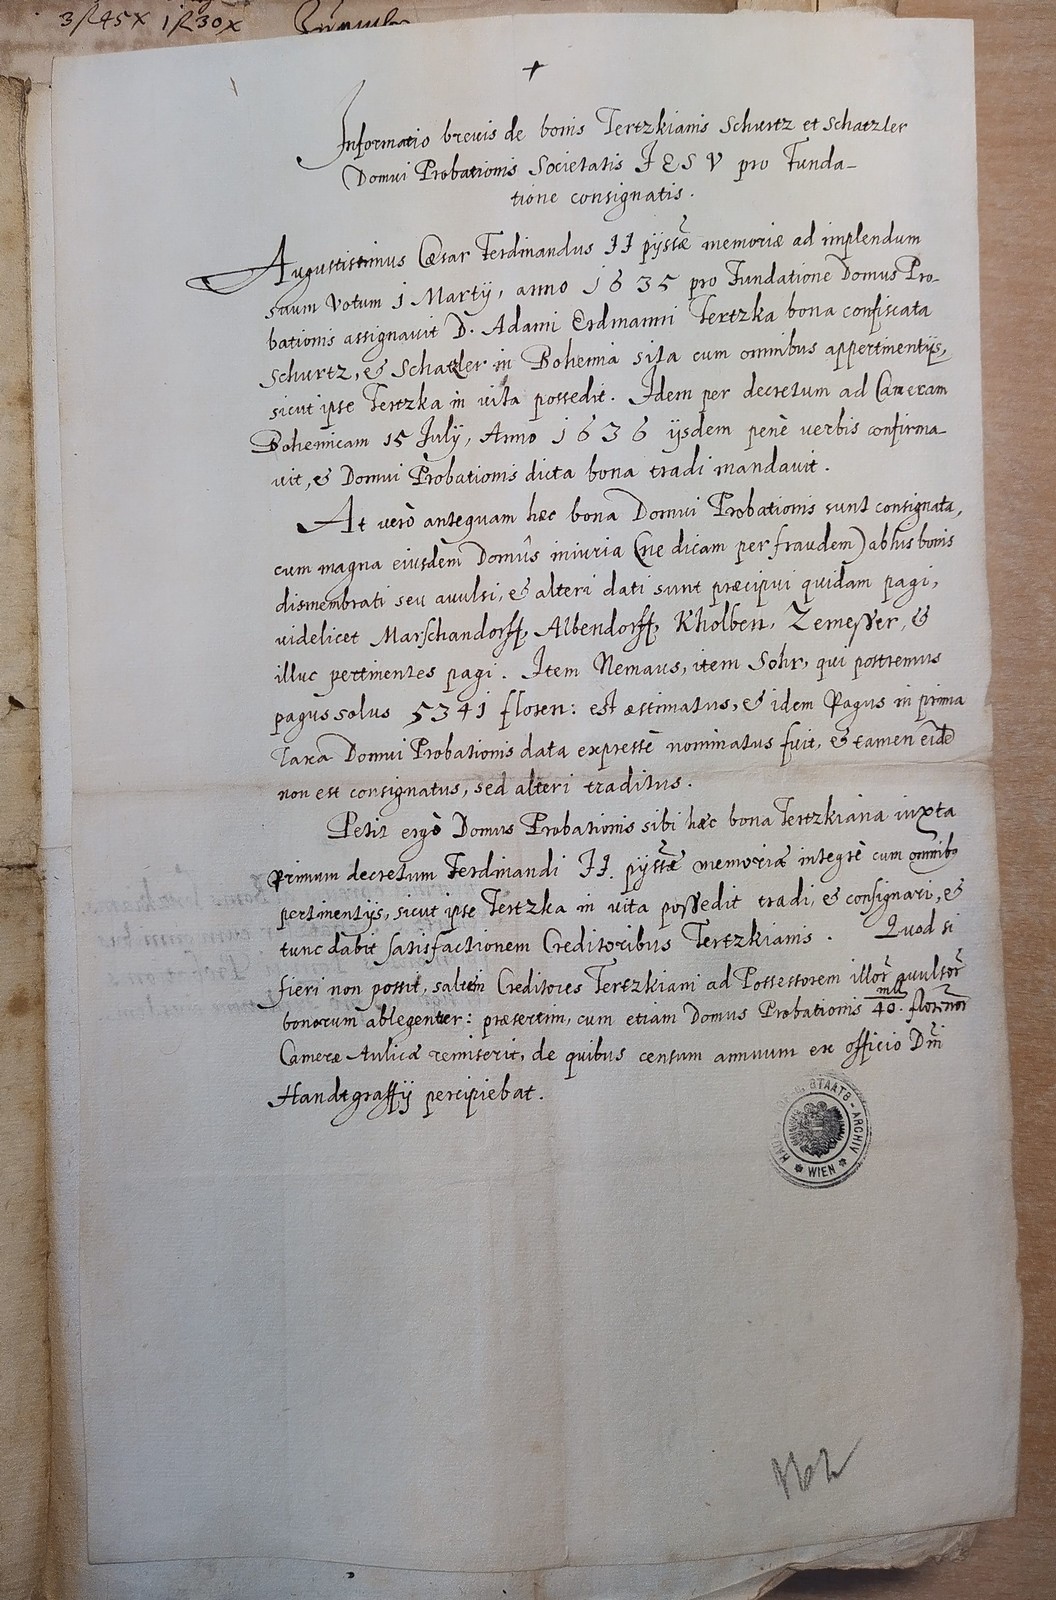 3 f 45 x 1 f 30 x
+
Informatio breuis de bonis Tertzkianis Schurtz et Schatzler
Domui Probationis Societatis IESV pro Funda-
tione consignatis.
Augustissimus Cæsar Ferdinandus II pijssæ memoriæ ad implendum
suum Votum 1 Martij, anno 1635 pro Fundatione Domus Pro-
bationis assignauit D. Adami Erdmanni Tertzka bona confiscata
Schurtz, & Schatzler in Bohemia sita cum omnibus appertinentijs,
sicut ipse Tertzka in vita possedit. Idem per decretum ad Cameram
Bohemicam 15 Julij, Anno 1636 ijsdem penè verbis confirma-
uit, & Domui Probationis dicta bona tradi mandauit.
At verò antequam hæc bona Domui Probationis sunt consignata,
cum magna eiusdem Domûs iniuria (ne dicam per fraudem) ab his bonis
dismembrati seu auulsi, & alteri dati sunt præcipui quidam pagi,
videlicet Marschandorff, Albendorff, Kholben, Zemesser, &
illuc pertinentes pagi. Item Nemaus, item Sohr, qui postremus
pagus solus 5341 floren: est æstimatus, & idem Pagus in prima
Taxa Domui Probationis data expressè nominatus fuit, & tamen eidē
non est consignatus, sed alteri traditus.
Petit ergò Domus Probationis sibi hæc bona Tertzkiana iuxta
Primum decretum Ferdinandi II. pijssæ memoriæ integrè cum omnibus
pertinentijs, sicut ipse Tertzka in vita possedit tradi, & consignari, &
tunc dabit satisfactionem Creditoribus Tertzkianis. Quod si
fieri non possit, saltem Creditores Tertzkiani ad Possessorem illor̄ auulsor̄
bonorum ablegentur: præsertim, cum etiam Domus Probationis 40. mll florenor̄
Cameræ Aulicæ remiserit, de quibus censum annuum ex officio Dnī
Handtgraffij percipiebat.
STAATS-ARCHIV
WIEN